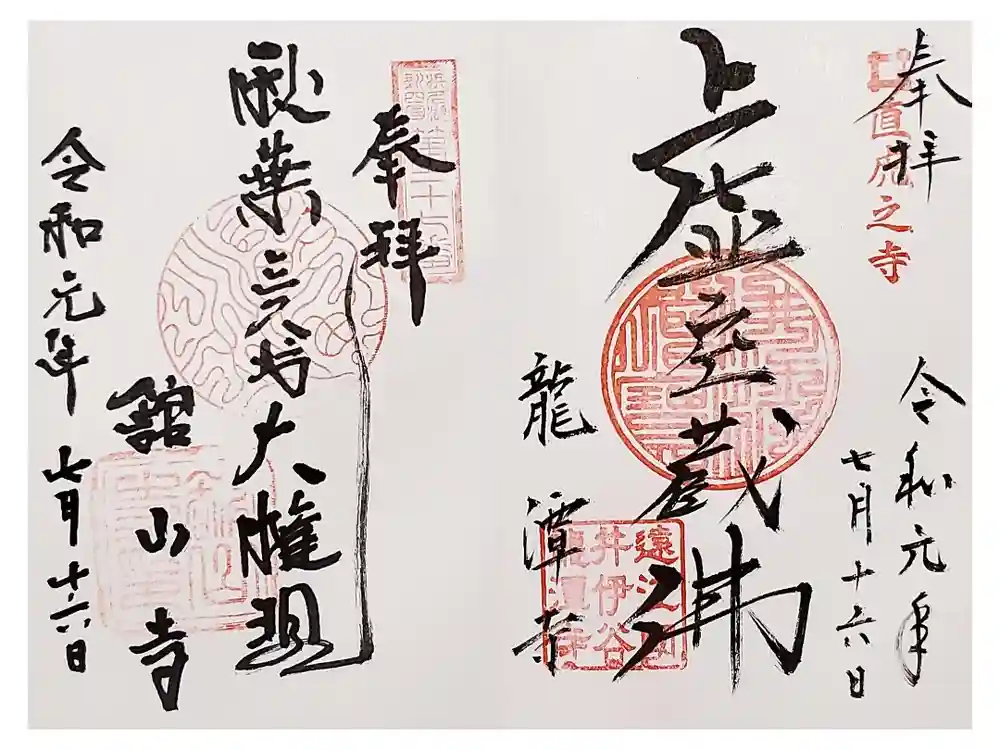 奉拝
直虎之寺
令和元年
七月十六日
虚空蔵佛
遠江國
井伊谷
龍潭寺
龍潭寺
奉拝
秋葉三尺坊大権現
舘山寺
令和元年
七月十六日